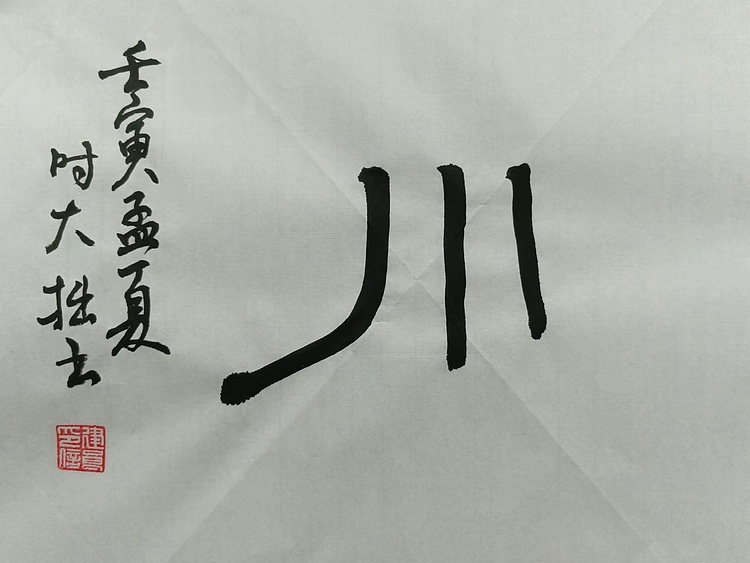 川
壬寅孟夏
时大拙书